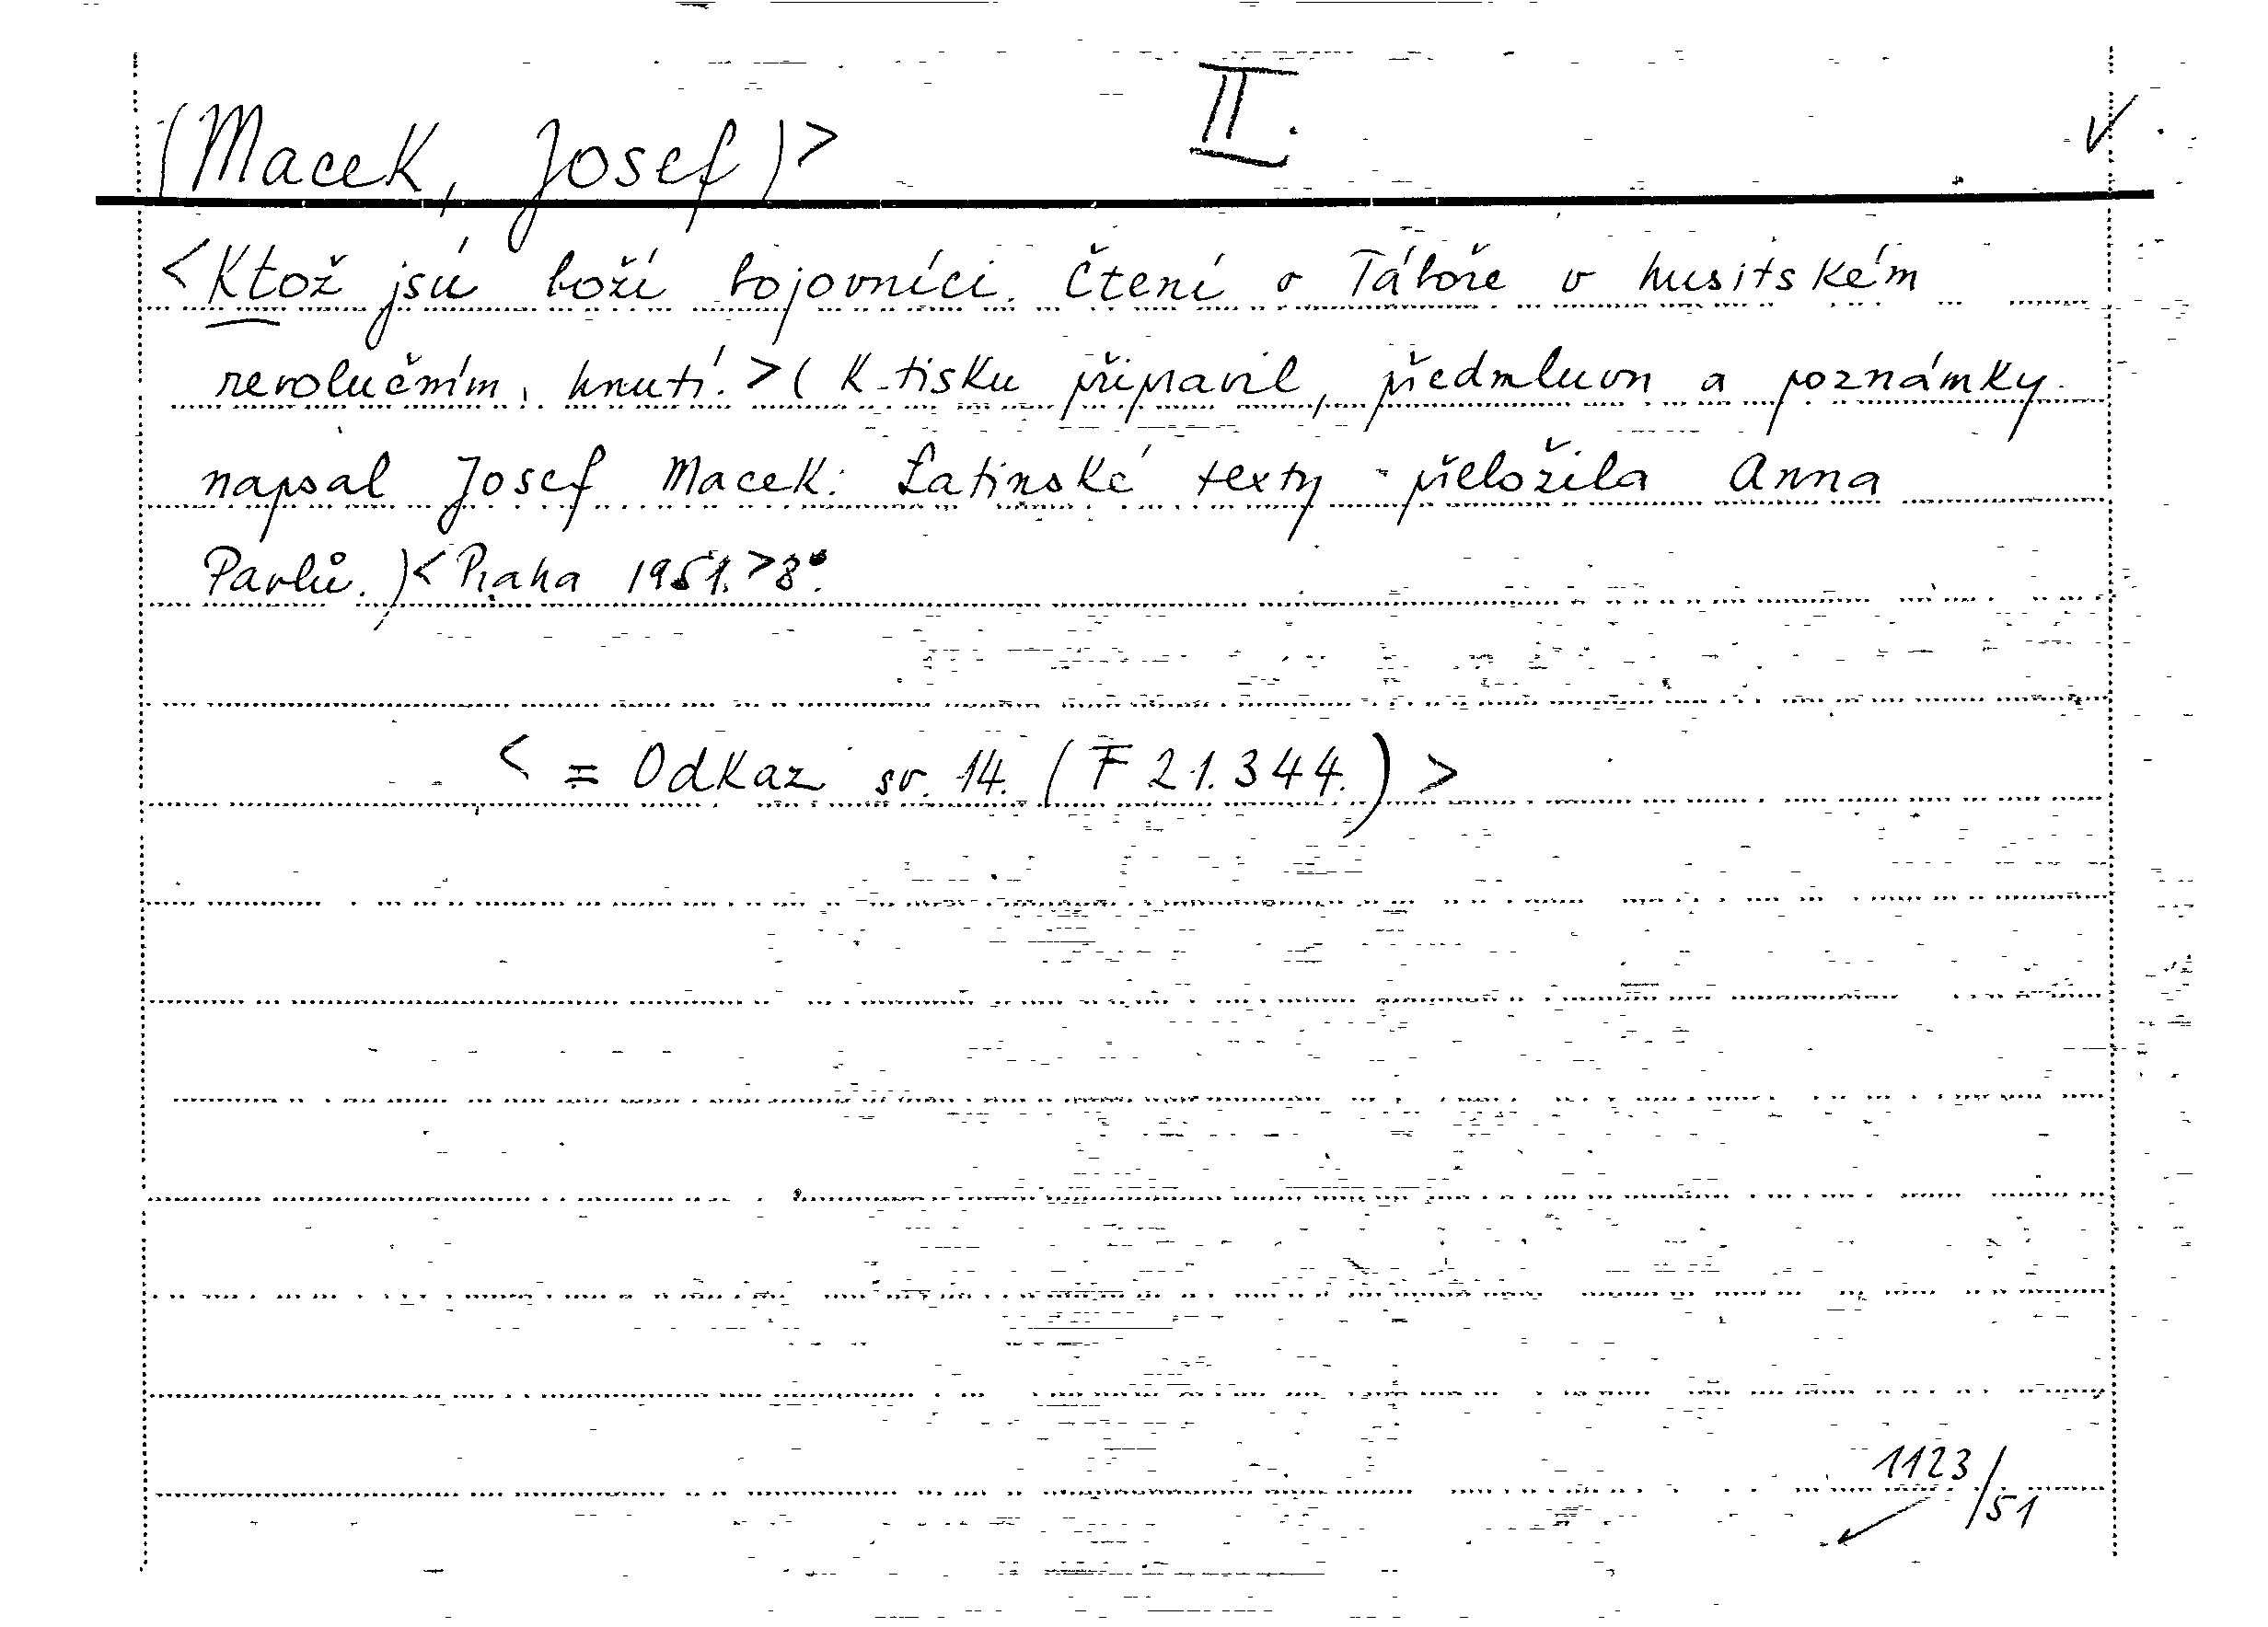 (Macek, Josef)> II. ✓
<Ktož jsú boží bojovníci. Čtení o Táboře v husitském
revolučním, hnutí.>( K tisku připravil, předmluvu a poznámky
napsal Josef Macek. Latinské texty přeložila Anna
Pavlů.)<Praha 1951.>8°.
< = Odkaz sv. 14. (F 21.344.) >
1123/51